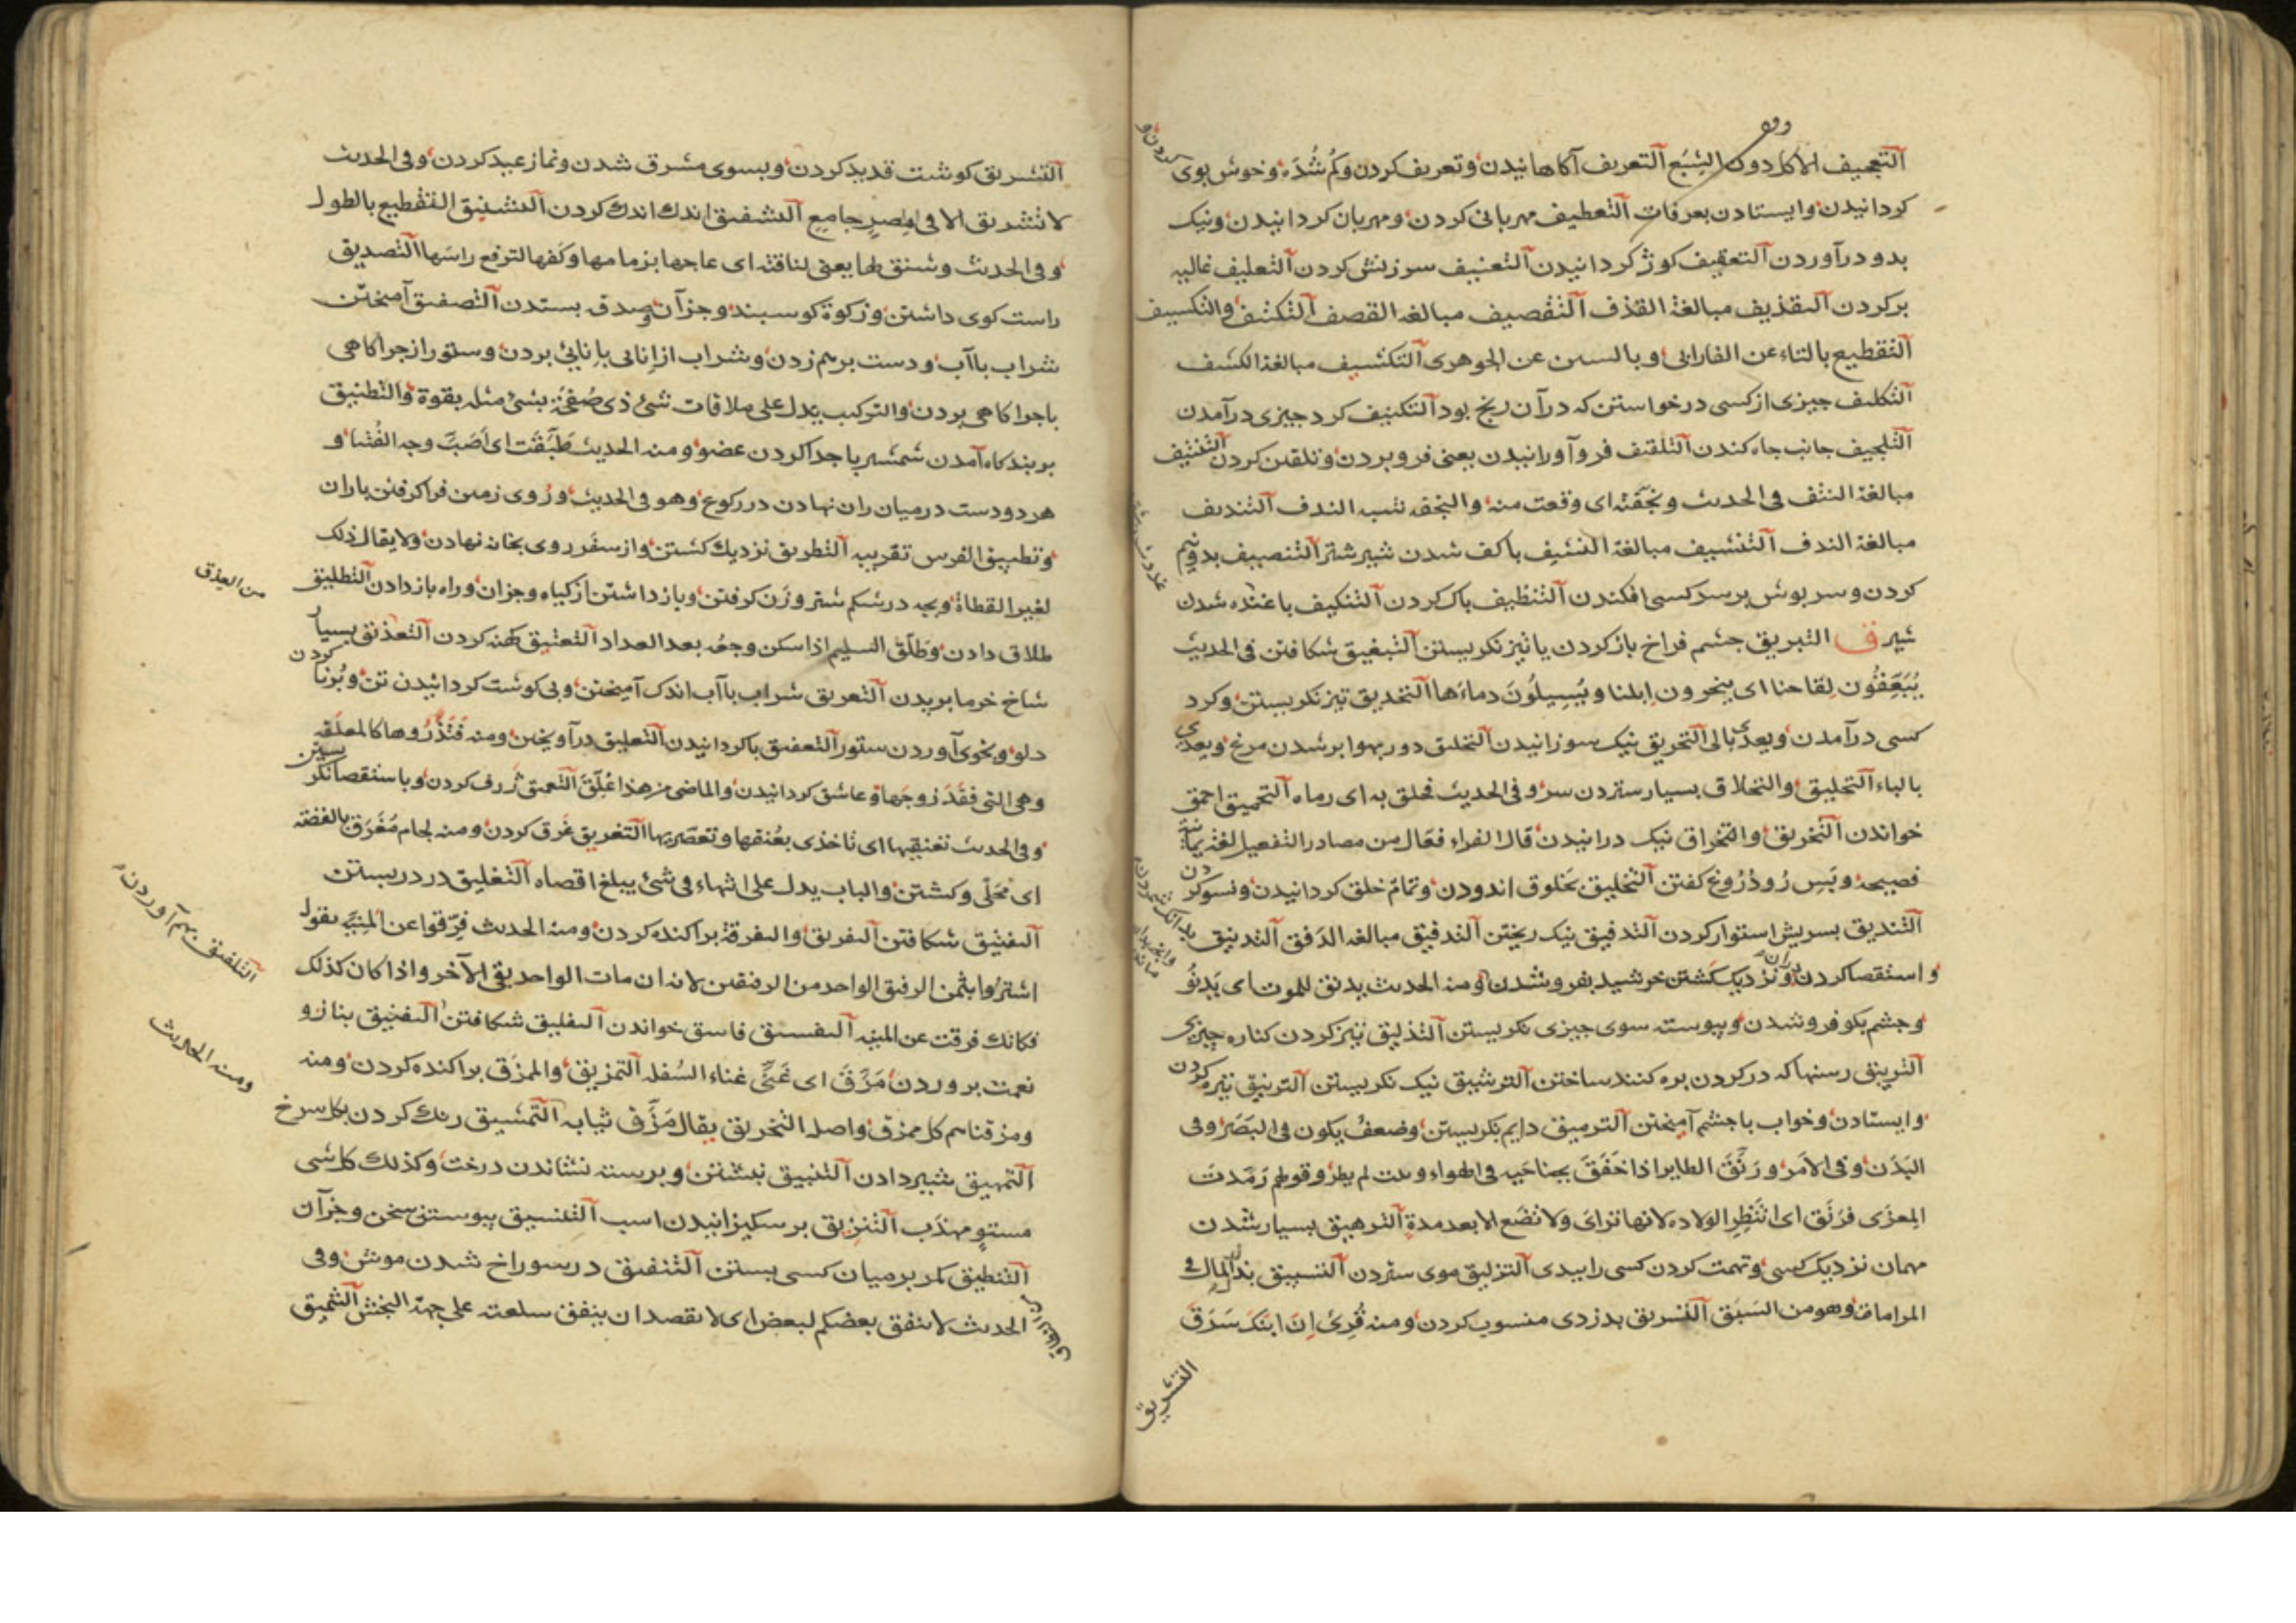 التعجيف الاكل دون الشبع التعريف آكاهانيدن وتعريف كردن وكم شده وخوش بوى كردن و
كردانيدن وايستادن بعرفات التعطيف مهربانى كردن ومهربان كردانيدن ونيك
بدو درآوردن التعقيف كوژ كردانيدن التعنيف سرزنش كردن التغليف غاليه
بركردن التقذيف مبالغة القذف التقصيف مبالغه القصف التكتيف والتكسيف
التقطيع بالتاء عن الفارابى وبالسين عن الجوهرى التكشيف مبالغة الكشف
التكليف چيزى از كسى درخواستن كه در آن رنج بود التكنيف كرد چيزى درآمدن
التلجيف جانب چاه كندن التلقيف فروآورانيدن يعنى فروبردن وتلقين كردن التنتيف
مبالغة النتف فى الحديث ونجفته اى وقعت منه والنجف شبه الندف التنديف
مبالغة الندف التنشيف مبالغة النشيف باكف شدن شير شتر التنصيف بدونيم
كردن وسرپوش برسر كسى افكندن التنظيف پاك كردن التنكيف باغنده شدن
شير ق التبريق چشم فراخ باز كردن يا تيز نكريستن التبعيق شكافتن فى الحديث
يُبَعِّقُون لقاحنا اى ينحرون ابلنا ويُسِيلُونَ دماءَها التحديق تيز نكريستن وكرد
كسى درآمدن ويعدى بالى التحريق نيك سوزانيدن التحليق دور بهوا برشدن مرغ ويعدى
بالباء التحليق والتحلاق بسيار ستردن سر وفى الحديث فحلق به اى رماه التحميق احمق
خواندن التخريق والتخراق نيك درانيدن قال الفراء فعّال من مصادر التفعيل لغة يمانية
فصيحة وبس زود دروغ كفتن التخليق بخلوق اندودن وتمام خلق كردانيدن ونسو كردن
التدبيق بسريش استوار كردن التدفيق نيك ريختن التدقيق مبالغه الدقق التدنيق
واستقصا كردن ونزديك كشتن خرشيد بفروشدن ومنه الحديث يدنق للموت اى يَدنُو
وچشم بكو فروشدن وپيوسته سوى چيزى نكريستن التذليق تيز كردن كناره چيزى
التربيق رسنها كه در كردن بره كنند ساختن الترشيق نيك نكريستن الترنيق تيره كردن
وايستادن وخواب باچشم آميختن الترميق دايم بكريستن وضعف يكون فى البَصَر وفى
البَدَن وفى الامر ورَنَّقَ الطاير اذا خَفَقَ بجناحيه فى الهواء وثبت لم يطر وقولهم رمّدت
المعزى فرَنِّق اى انتَظِر الولاده لانها تراى ولا تضع الا بعد مدة الترهيق بسيار شدن
مهمان نزديك كسى وتهمت كردن كسى را ببدى التزليق موى ستردن التسبيق بذل المال فى
المراماة وهو من السَبَق التسريق بدزدى منسوب كردن ومنه قُرِئ اِنّ ابنكَ سُرِّقَ
التشريق
التشريق كوشت قديد كردن وبسوى مشرق شدن ونماز عيد كردن وفى الحديث
لا تشريق الا فى مصرٍ جامعٍ التشفيق اندك اندك كردن التشنيق التقطيع بالطول
وفى الحديث وشنق لها يعنى لناقته اى عاجها بزمامها وكفها لترفع راسَها التصديق
راست كوى داشتن وزكوة كوسبند وجز آن وصدقه بستدن التصفيق آميختن
شراب باآب ودست برهم زدن وشراب از انائى باِنائى بردن وستور از چراكاهى
باچراكاهى بردن والتركيب يدل على ملاقات شئ ذى صُفحةٍ بشئ مثله بقوة والتطبيق
بر بندكاه آمدن شمشير يا جدا كردن عضو ومنه الحديث طَبَّقَت اى اَصَبتَ وجه الفُتيا و
هر دو دست در ميان ران نهادن در ركوع وهو فى الحديث وروى زمين فراكرفتن باران
وتطبيق الفرس تقريبه التطريق نزديك كشتن واز سفر روى بخانه نهادن ولا يقال ذلك
لغير القطاة وبچه در شكم شتر وزن كرفتن وبازداشتن از كياه وجزان وراه باز دادن التطليق
طلاق دادن وطَلَّق السليم اذا سكن وجعُه بعد العداد التعتيق كهنه كردن التعذيق بسيار
كردن
من العذق
شاخ خرما بريدن التعريق شراب باآب اندك آميختن وبى كوشت كردانيدن تن وبُزنا
دلو وبخوى آوردن ستور التعفيق باكردانيدن التعليق درآويختن ومنه فَتَذَرُوها كالمعلّقه
وهى التى فقَدَ زوجَها وعاشق كردانيدن والماضى من هذا عُلِّقَ التعمق ژرف كردن وباستقصا نكريستن
وفى الحديث تعنقيها اى تاخذى بعُنقها وتعصّريها التغريق غرق كردن ومنه لجام مُغَرَق بالفضة
اى محَلّى وكشتن والباب يدل على انتهاء فى شئ يبلغ اقصاه التغليق در دربستن
التفتيق شكافتن التفريق والتفرقة پراكنده كردن ومنه الحديث فرّقوا عن المنيّه يقول
اشترُوا بثمن الرفيق الواحد من الرفقين لانه ان مات الواحد بقى الآخر واذا كان كذلك
فكانك فرقت عن المنيه التفسيق فاسق خواندن التفليق شكافتن التفنيق بنازو
نعمت پروردن مَزَّقَ اى غَنّى غناء السُفله التمزيق والمزق پراكنده كردن ومنه
ومزقناهم كل ممزق واصله التخريق يقال مَزَّق ثيابه التمشيق رنك كردن بكل سرخ
التمهيق شير دادن التنبيق نبشتن وبرسته نشاندن درخت وكذلك كل شى
مستوٍ مهذب التنزيق برسكيزانيدن اسب التنسيق پيوستن سخن وجزآن
التنطيق كمر بر ميان كسى بستن التنفيق در سوراخ شدن موش وفى
الحديث لا ينفق بعضكم لبعض اى لا يقصد ان ينفق سلعته على جهة النجش التنميق
التلفيق بهم آوردن
ومنه الحديث